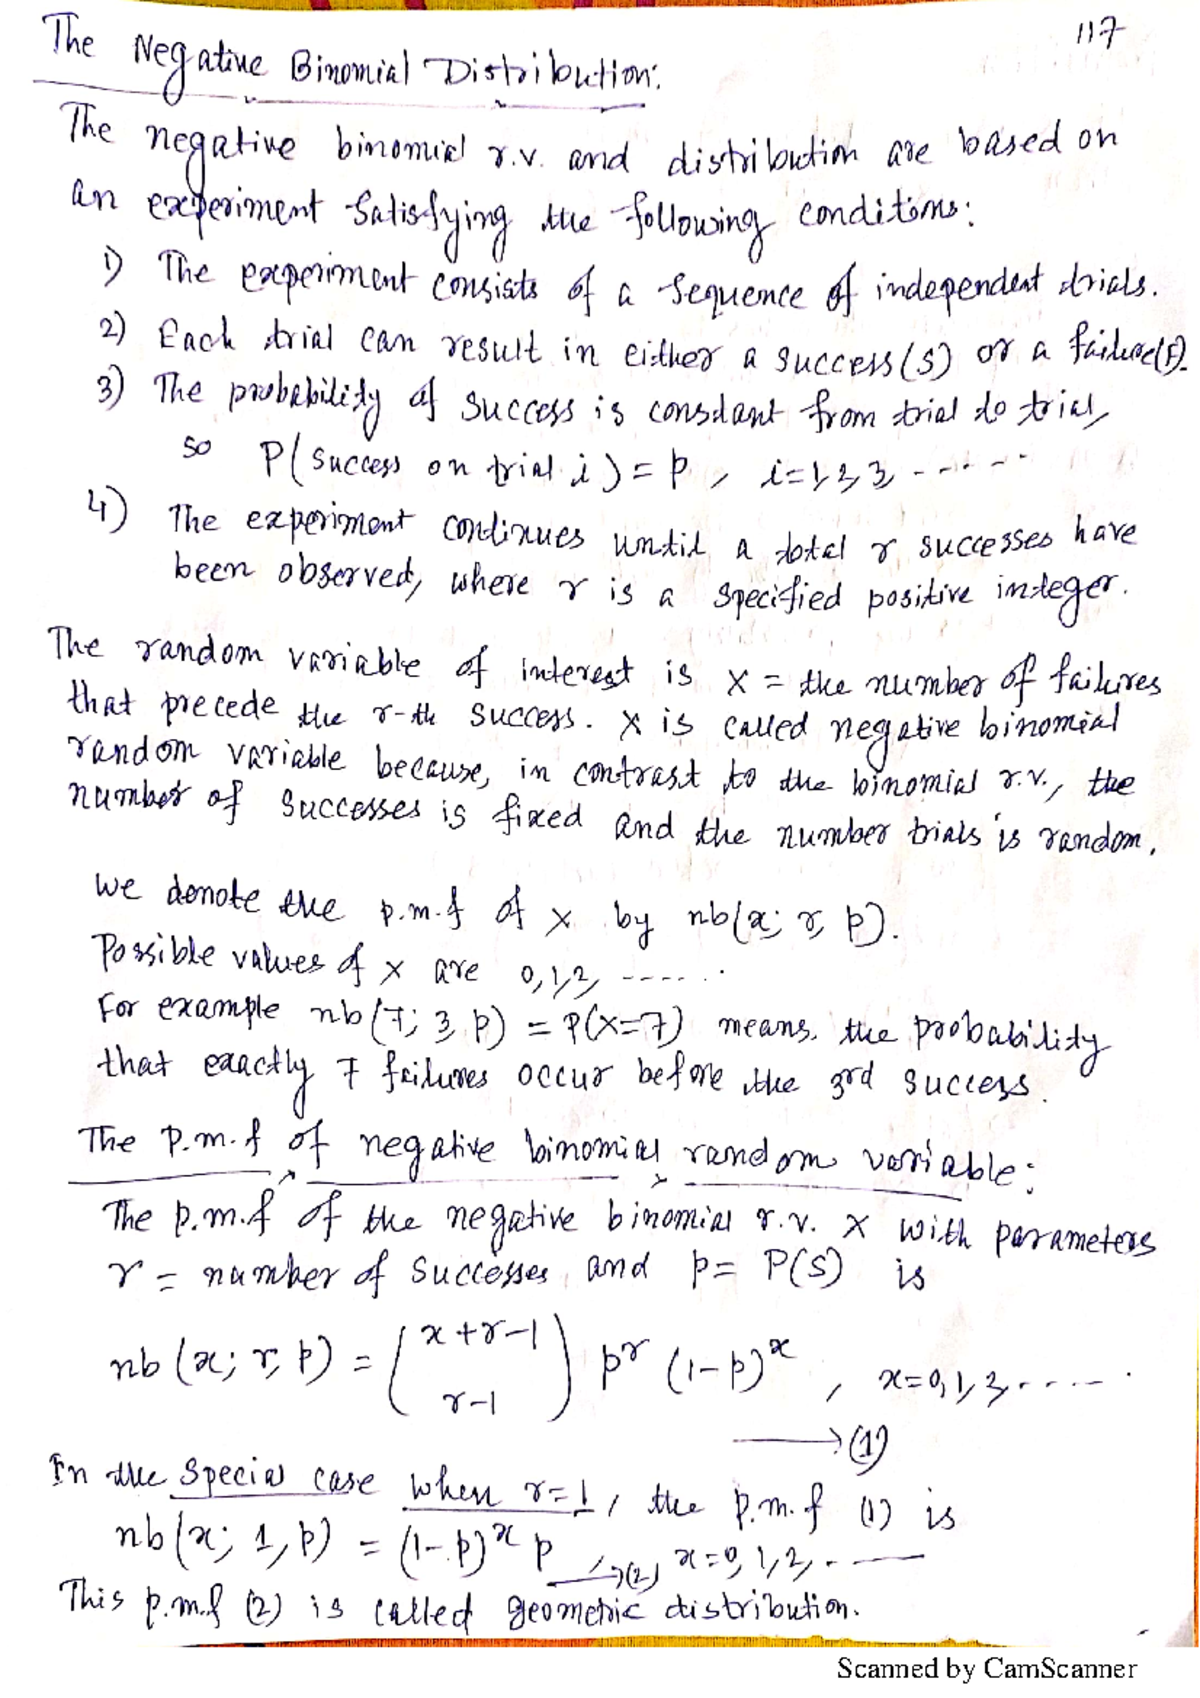 117
The Negative Binomial Distribution:
The negative binomial r.v. and distribution are based on
an experiment satisfying the following conditions:
1) The experiment consists of a sequence of independent trials.
2) Each trial can result in either a success (S) or a failure (F).
3) The probability of success is constant from trial to trial,
so P(success on trial i) = p, i=1,2,3, ------
4) The experiment continues until a total r successes have
been observed, where r is a specified positive integer.
The random variable of interest is X = the number of failures
that precede the r-th success. X is called negative binomial
random variable because, in contrast to the binomial r.v., the
number of successes is fixed and the number trials is random.
We denote the p.m.f of X by nb(x; r, p).
Possible values of X are 0,1,2, ------
For example nb(7; 3, p) = P(X=7) means, the probability
that exactly 7 failures occur before the 3rd success.
The P.m.f of negative binomial random variable:
The p.m.f of the negative binomial r.v. X with parameters
r = number of successes and p = P(S) is
nb(x; r, p) = \binom{x+r-1}{r-1} p^r (1-p)^x, x=0,1,2,------
→(1)
In the special case when r=1, the p.m.f (1) is
nb(x; 1, p) = (1-p)^x p →(2) x=0,1,2,------
This p.m.f (2) is called geometric distribution.
Scanned by CamScanner